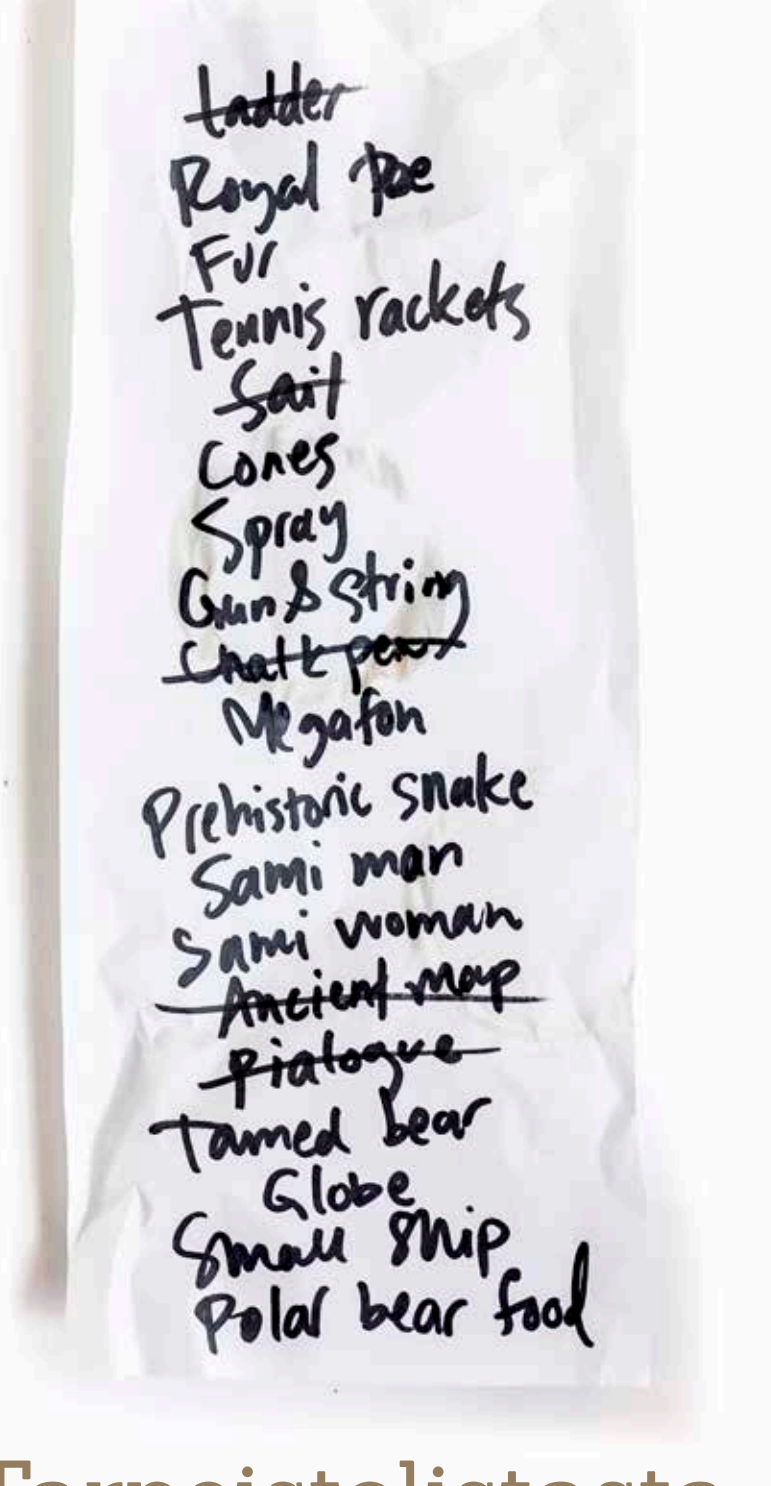 Ladder
Royal Poe
Fur
Tennis rackets
Sail
Cones
Spray
Gun & String
Chalk pens
Megafon
Prehistoric snake
Sami man
Sami woman
Ancient map
Pialogue
Tamed bear
Globe
Small ship
Polar bear food